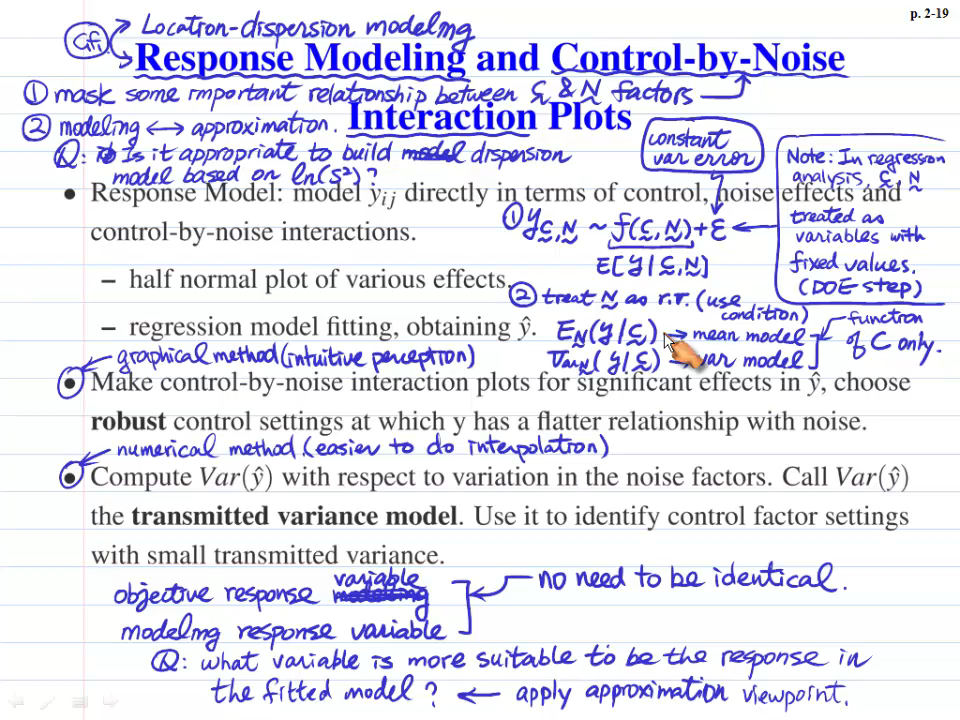 p. 2-19
Cf. Location-dispersion modeling
Response Modeling and Control-by-Noise
① mask some important relationship between C & N factors
Interaction Plots
② modeling ↔ approximation.
Q: Is it appropriate to build dispersion
model based on ln(s²)?
constant
var error
Note: In regression
analysis, C, N
treated as
variables with
fixed values.
(DOE step)
• Response Model: model y_ij directly in terms of control, noise effects and
control-by-noise interactions.
① y_C,N ~ f(C, N) + ε
E[y|C,N]
– half normal plot of various effects.
② treat N as r.v. (use
condition)
– regression model fitting, obtaining ŷ.
E_N(y|C) → mean model
Var_N(y|C) → var model
function
of C only.
graphical method (intuitive perception)
• Make control-by-noise interaction plots for significant effects in ŷ, choose
robust control settings at which y has a flatter relationship with noise.
numerical method (easier to do interpolation)
• Compute Var(ŷ) with respect to variation in the noise factors. Call Var(ŷ)
the transmitted variance model. Use it to identify control factor settings
with small transmitted variance.
objective response variable
modeling response variable
no need to be identical.
Q: what variable is more suitable to be the response in
the fitted model? ← apply approximation viewpoint.